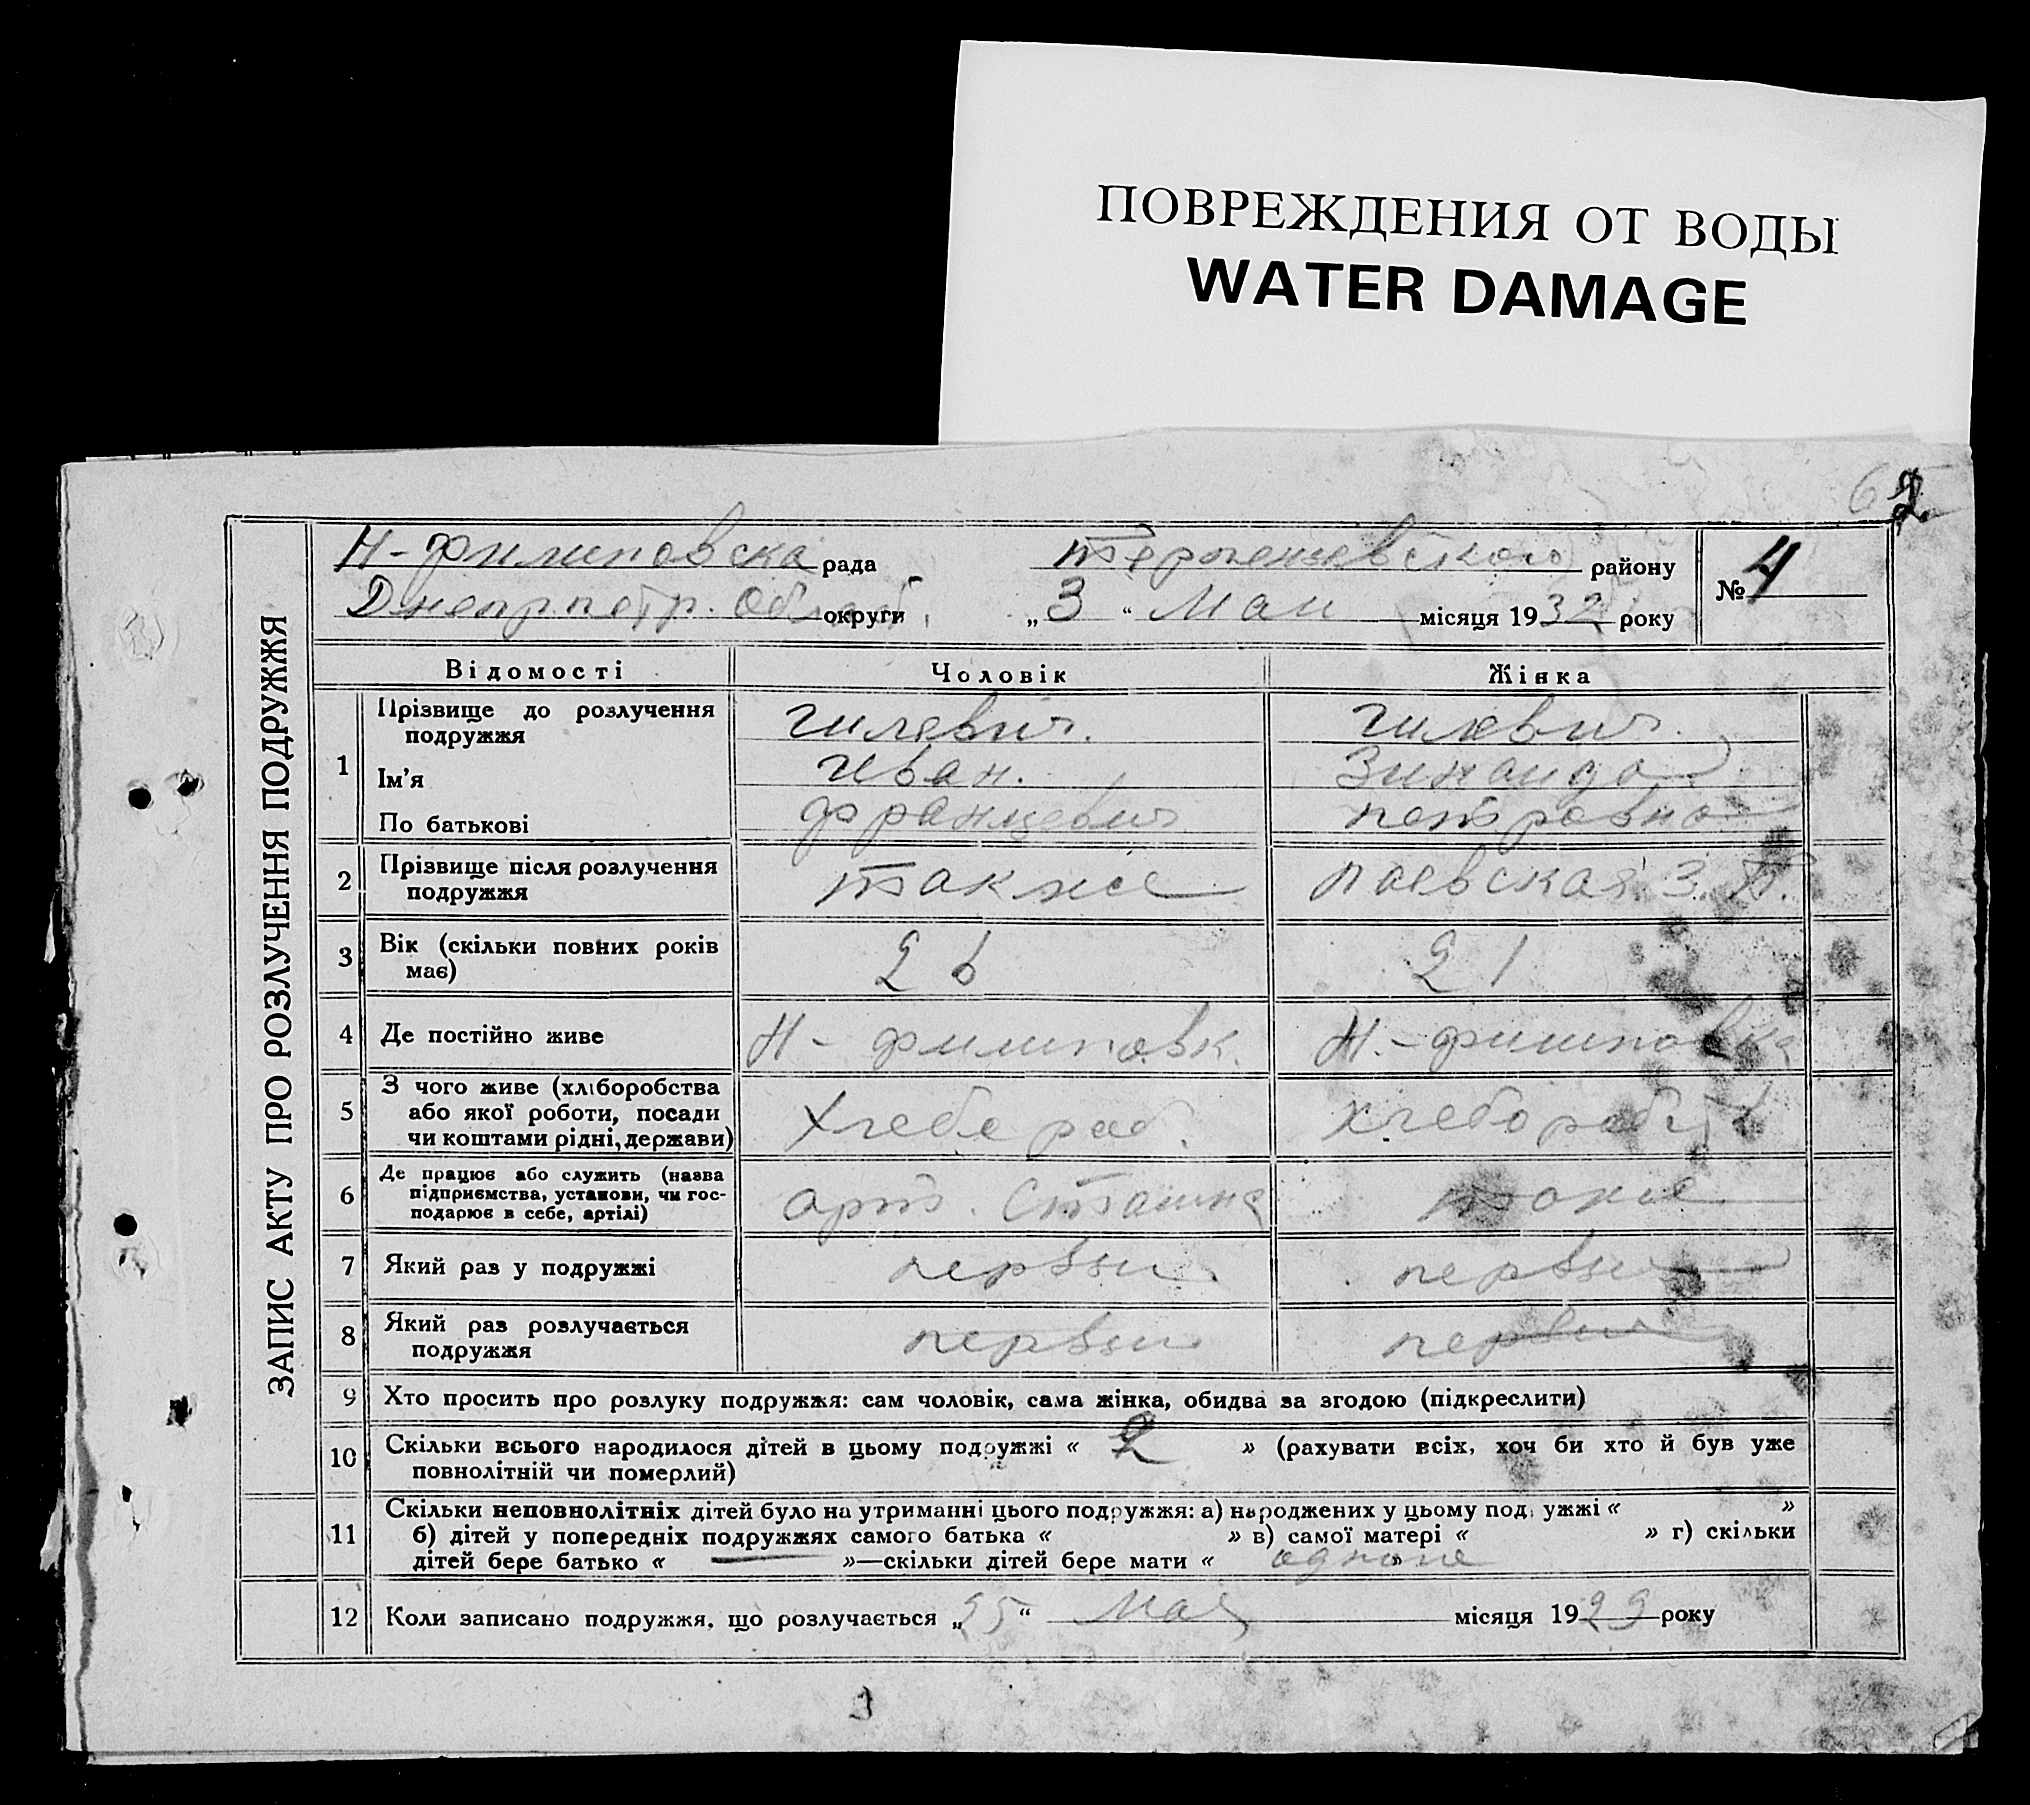 ПОВРЕЖДЕНИЯ ОТ ВОДЫ
WATER DAMAGE
62
ЗАПИС АКТУ ПРО РОЗЛУЧЕННЯ ПОДРУЖЖЯ
Н-Филиповска рада району № 4
Днепрпетр. Обл округи „3“ Мая місяця 1932 року
Відомості Чоловік Жінка
1 Прізвище до розлучення подружжя Гилевич. Гилевич.
Ім'я Иван. Зинаида
По батькові Францевич Петровна
2 Прізвище після розлучення подружжя также Паевская З. П.
3 Вік (скільки повних років має) 26 21
4 Де постійно живе Н-Филиповк. Н.-Филиповка
5 З чого живе (хліборобства
або якої роботи, посади
чи коштами рідні, держави) Хлебороб. Хлебороб
6 Де працює або служить (назва
підприємства, установи, чи гос-
подарює в себе, артілі) арт. Сталина также
7 Який раз у подружжі первый первый
8 Який раз розлучається подружжя первый первый
9 Хто просить про розлуку подружжя: сам чоловік, сама жінка, обидва за згодою (підкреслити)
10 Скільки всього народилося дітей в цьому подружжі « 2 » (рахувати всіх, хоч би хто й був уже
повнолітній чи померлий)
11 Скільки неповнолітніх дітей було на утриманні цього подружжя: а) народжених у цьому подружжі « »
б) дітей у попередніх подружжях самого батька « » в) самої матері « » г) скільки
дітей бере батько « — »—скільки дітей бере мати « »
12 Коли записано подружжя, що розлучається „25“ Мая місяця 1929 року